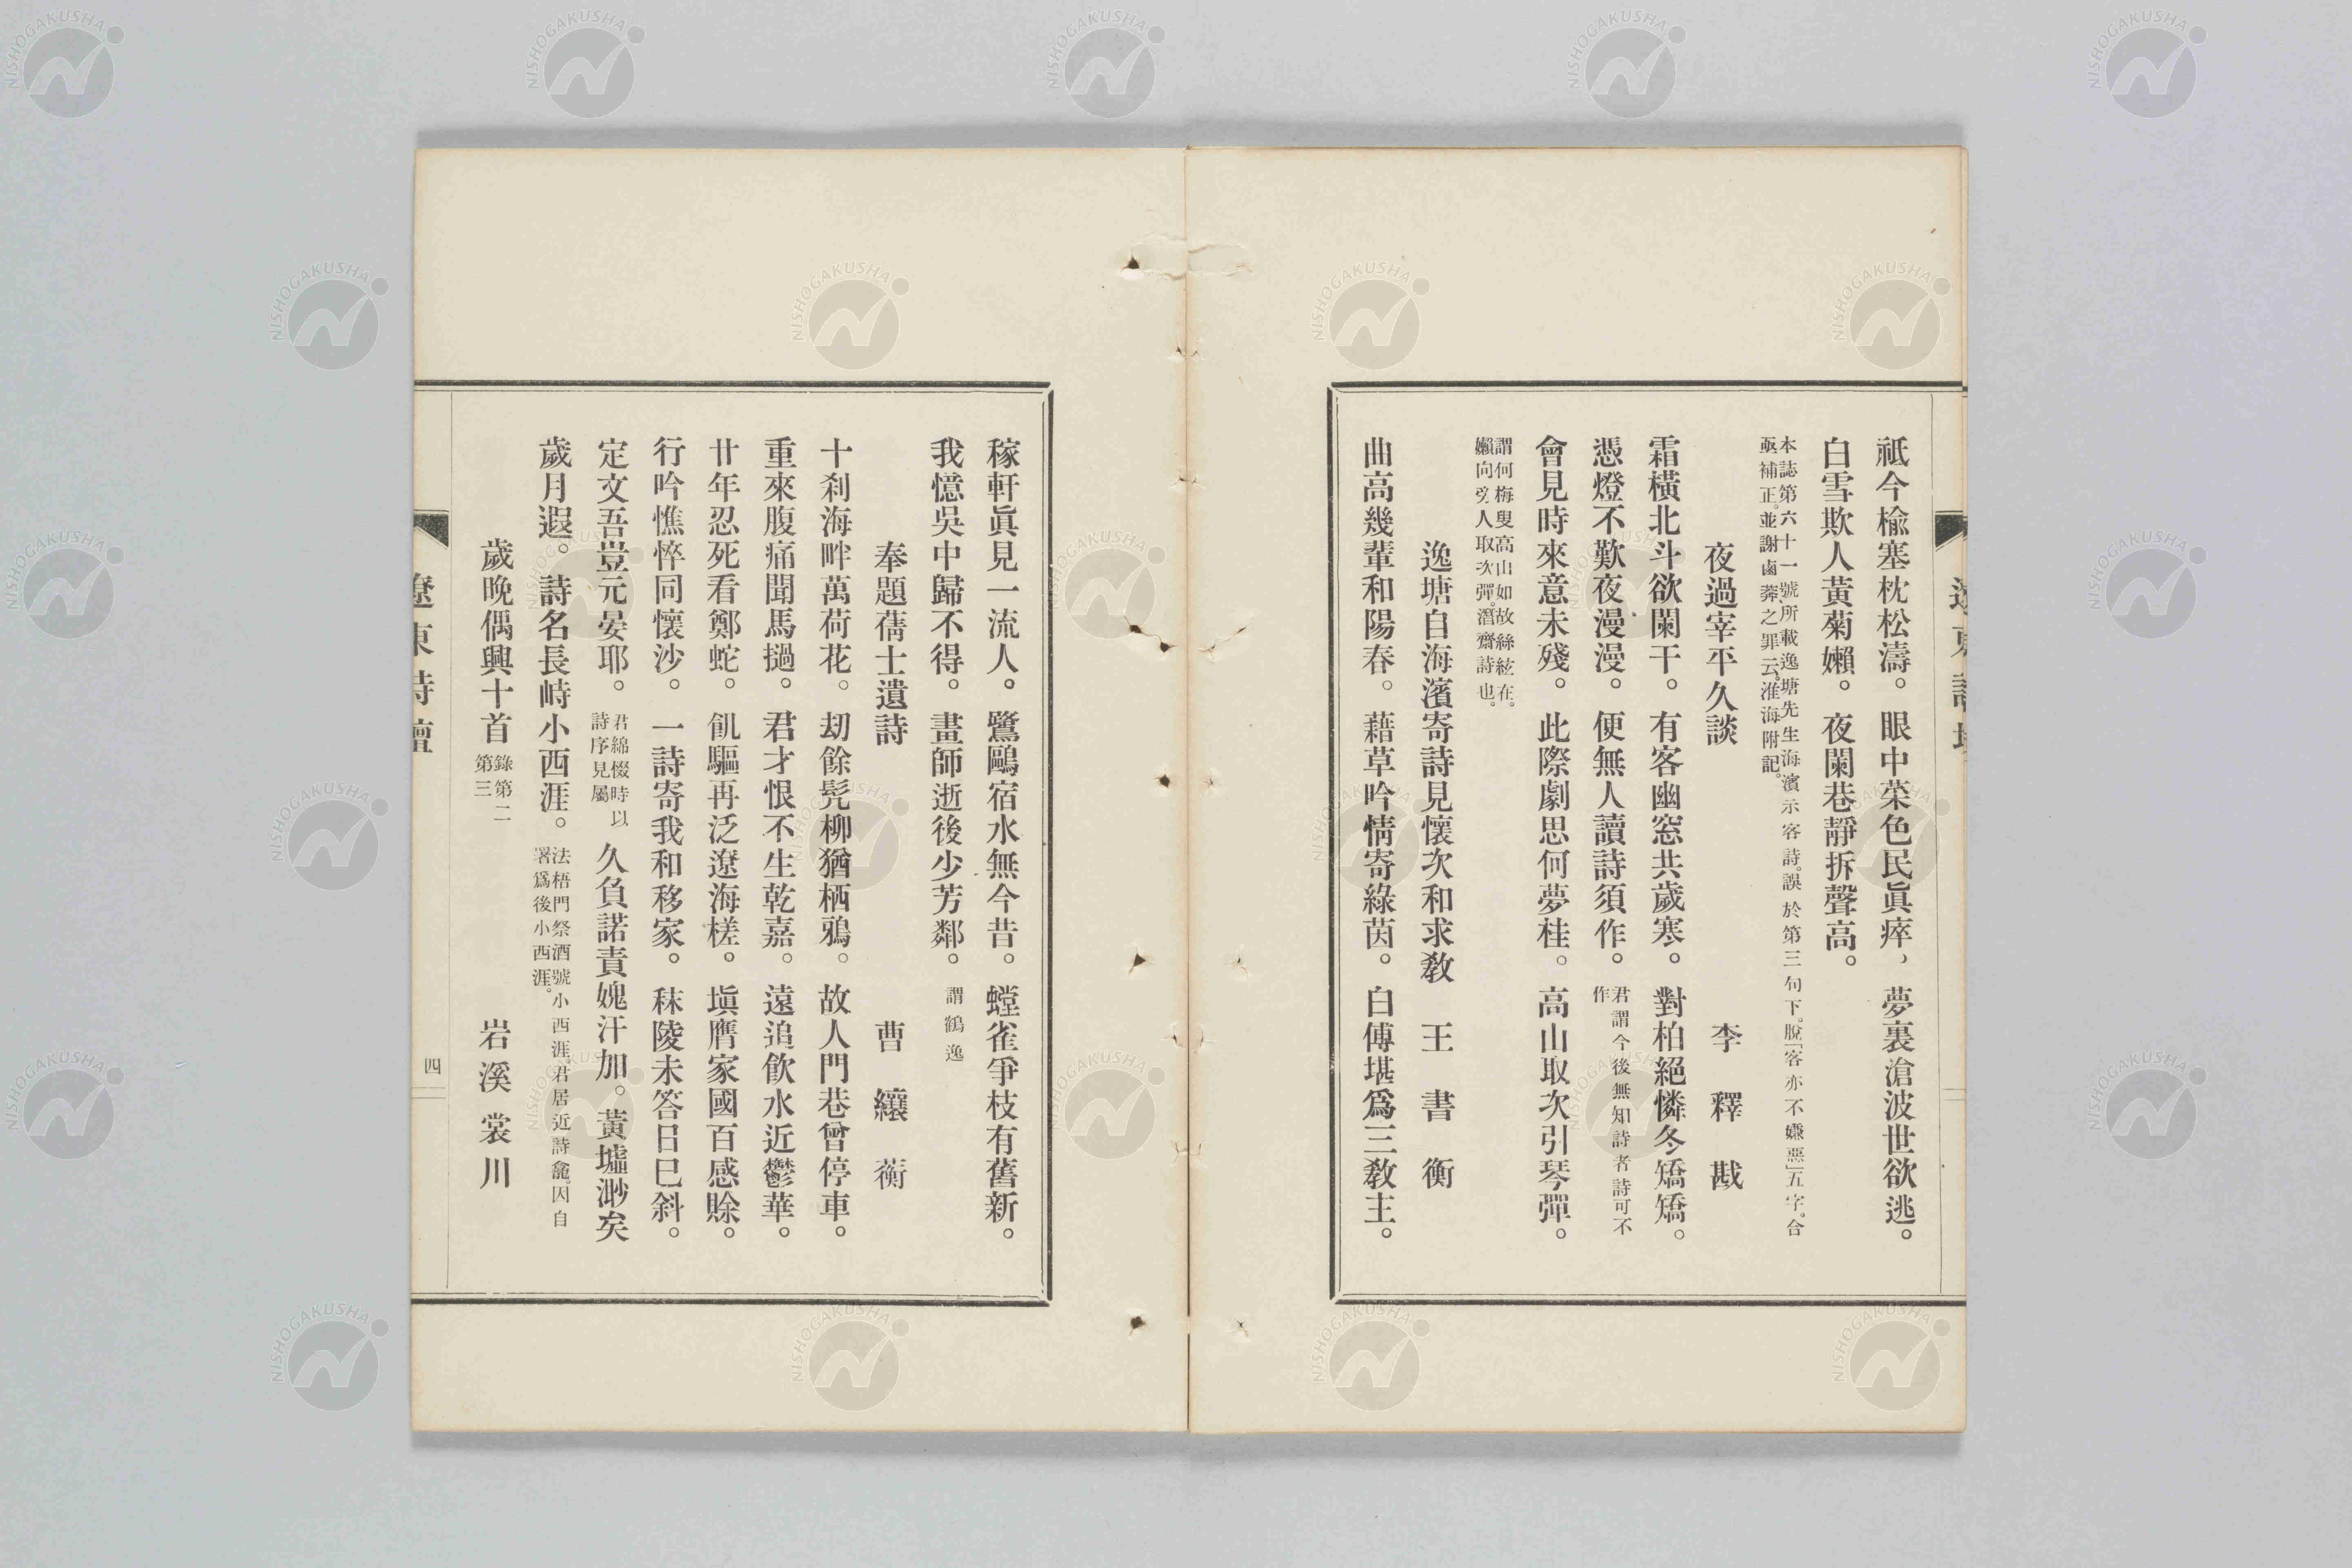 祗今楡塞枕松濤。眼中菜色民眞瘁、夢裏滄波世欲逃。
白雪欺人黃菊嬾。夜闌巷靜拆聲高。
本誌第六十一號所載逸塘先生海濱示客詩。誤於第三句下。脫「客亦不嫌惡」五字。合
亟補正。並謝鹵莽之罪云。淮海附記。
夜過宰平久談 李釋戡
霜橫北斗欲闌干。有客幽窓共歲寒。對柏絕憐冬矯矯。
憑燈不歎夜漫漫。便無人讀詩須作。
君謂今後無知詩者詩可不
作
會見時來意未殘。此際劇思何夢桂。高山取次引琴彈。
謂何梅叟高山如故絲絃在。
嬾向旁人取次彈。潛齋詩也。
逸塘自海濱寄詩見懷次和求敎 王書衡
曲高幾輩和陽春。藉草吟情寄綠茵。白傅堪爲三敎主。
稼軒眞見一流人。鷺鷗宿水無今昔。螳雀爭枝有舊新。
我憶吳中歸不得。畫師逝後少芳鄰。謂鶴逸
奉題蒨士遺詩 曹纕蘅
十刹海畔萬荷花。劫餘髡柳猶栖鴉。故人門巷曾停車。
重來腹痛聞馬撾。君才恨不生乾嘉。遠追飮水近鬱華。
廿年忍死看鄭蛇。飢驅再泛遼海槎。塡膺家國百感賒。
行吟憔悴同懷沙。一詩寄我和移家。秣陵未答日已斜。
定文吾豈元晏耶。
君綿惙時以
詩序見屬
久負諾責媿汗加。黃墟渺矣
歲月遐。詩名長峙小西涯。
法梧門祭酒號小西涯。君居近詩龕。因自
署爲後小西涯。
歲晩偶興十首
錄第二
第三
岩溪裳川
遼東詩壇
四